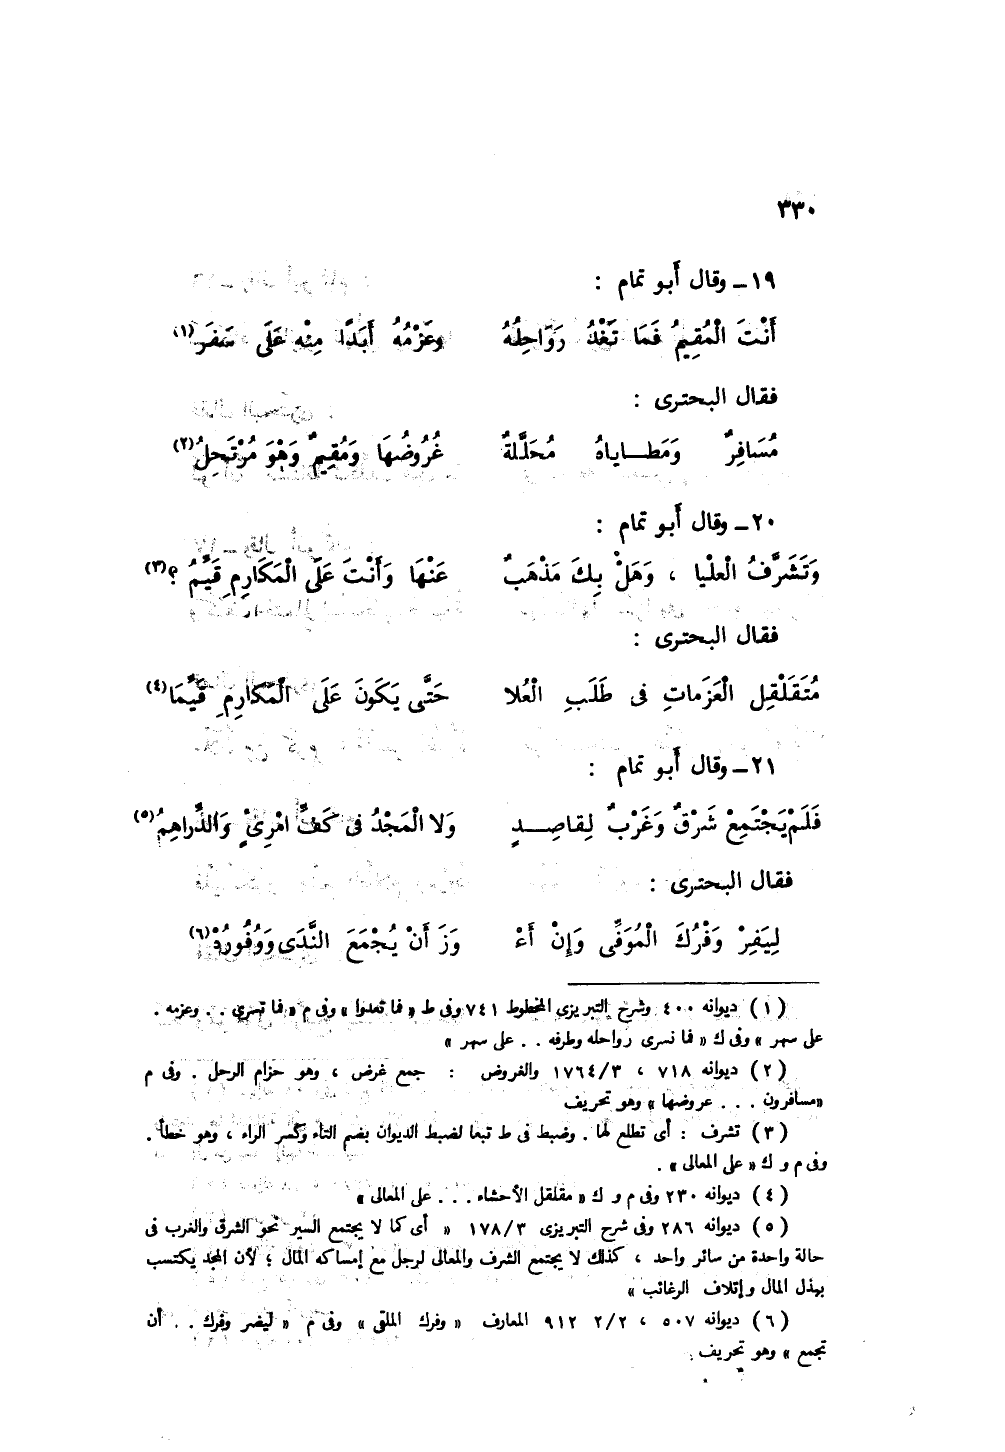 ٣٣٠
١٩ ــ وقال أبو تمام :
أَنْتَ الْمُقِيمُ فَمَا تَغْدُ رَوَاحِلُهُ وعَزْمُهُ أَبَدًا مِنْه عَلَى سَفَرَ(١)
فقال البحترى :
مُسَافِرٌ وَمَطــاياهُ مُحَلَّلةٌ غُرُوضُهَا وَمُقِيمٌ وَهْوَ مُرْتَحِلُ(٢)
٢٠ ــ وقال أبو تمام :
وَتَشَرَّفُ الْعلْيا ، وَهَلْ بِكَ مَذْهَبٌ عَنْهَا وَأَنْتَ عَلَى الْمَكَارِمِ قَيِّمُ ؟(٣)
فقال البحترى :
مُتَقَلْقِل الْعَزَماتِ فى طَلَبِ الْعُلا حَتَّى يَكُونَ عَلَى الْمَكَارِمِ قَيِّمَا(٤)
٢١ ــ وقال أبو تمام :
فَلَمْ يَجْتَمِعْ شَرْقٌ وَغَرْبٌ لِقاصِــدٍ وَلا الْمَجْدُ فى كَفِّ امْرِئٍ وَالدَّراهِمُ(٥)
فقال البحترى :
لِيَفِرْ وَفْرُكَ الْمُوَفَّى وَإِنْ أَعْ وَزَ أَنْ يُجْمَعَ النَّدَى وَوُفُورُهْ(٦)
(١) ديوانه ٤٠٠ وشرح التبريزى المخطوط ٧٤١ وفى ط « فما تعدوا » وفى م « فما تسري . . وعزمه .
على سهر » وفى ك « فما نسرى رواحله وطرفه . . على سهر »
(٢) ديوانه ٧١٨ ، ١٧٦٤/٣ والغروض : جمع غرض ، وهو حزام الرحل . وفى م
«مسافرون . . . عروضها » وهو تحريف
(٣) تشرف : أى تطلع لها . وضبط فى ط تبعا لضبط الديوان بضم التاء وكسر الراء ، وهو خطأ .
وفى م و ك « على المعالى » .
(٤) ديوانه ٢٣٠ وفى م و ك « مقلقل الأحشاء . . . على المعالى »
(٥) ديوانه ٢٨٦ وفى شرح التبريزى ١٧٨/٣ « أى كما لا يجتمع السير نحو الشرق والغرب فى
حالة واحدة من سائر واحد ، كذلك لا يجتمع الشرف والمعالى لرجل مع إمساكه المال ؛ لأن المجد يكتسب
ببذل المال وإتلاف الرغائب »
(٦) ديوانه ٥٠٧ ، ٢/٢ ٩١٢ المعارف « وفرك الملقى » وفى م « ليضر وفرك . . أن
تجمع » وهو تحريف .